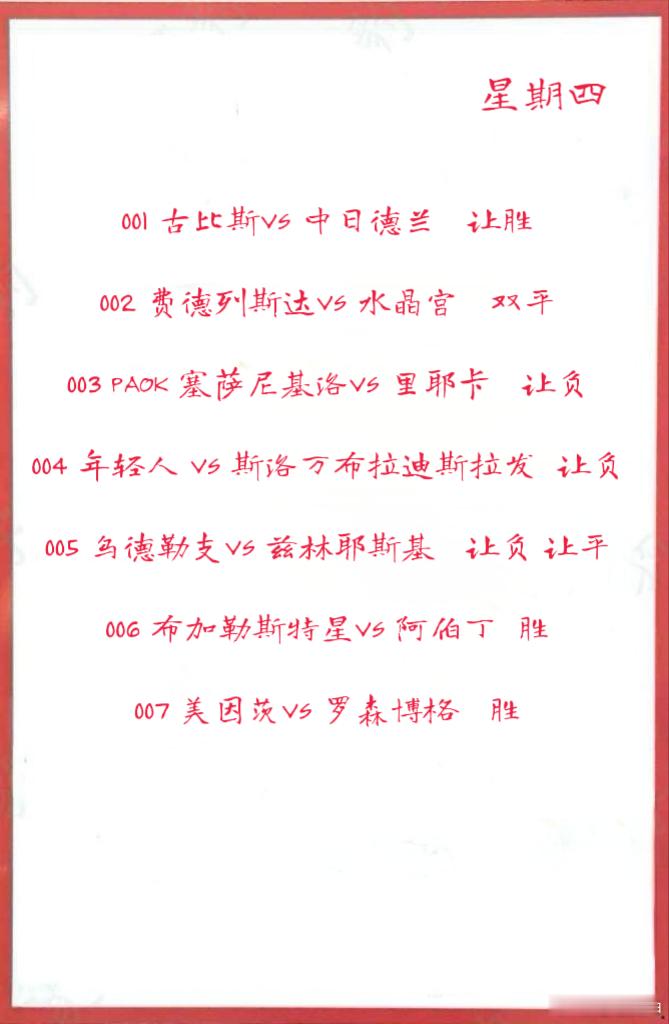 星期四
001 古比斯VS 中日德兰 让胜
002 费德列斯达VS 水晶宫 双平
003 PAOK 塞萨尼基洛VS 里耶卡 让负
004 年轻人 VS 斯洛万布拉迪斯拉发 让负
005 乌德勒支VS 兹林耶斯基 让负 让平
006 布加勒斯特星VS 阿伯丁 胜
007 美因茨VS 罗森博格 胜